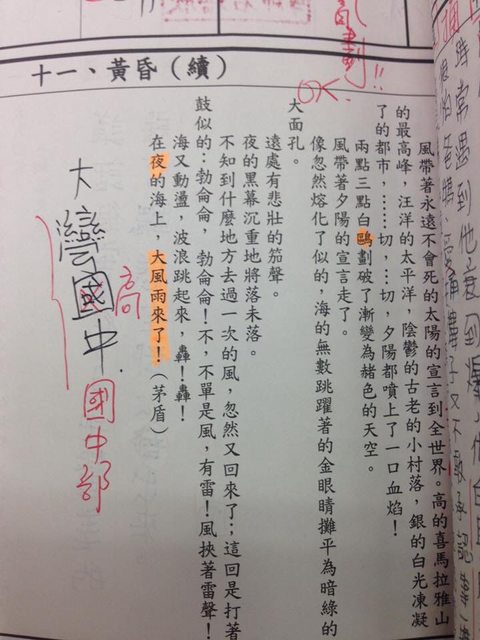 十一、黃昏（續）
風帶著永遠不會死的太陽的宣言到全世界。高的喜馬拉雅山
的最高峰，汪洋的太平洋，陰鬱的古老的小村落，銀的白光凍凝
了的都市，……切，…切，夕陽都噴上了一口血焰！
兩點三點白鷗劃破了漸變為赭色的天空。
風帶著夕陽的宣言走了。
像忽然熔化了似的，海的無數跳躍著的金眼睛攤平為暗綠的
大面孔。
遠處有悲壯的笳聲。
夜的黑幕沉重地將落未落。
不知到什麼地方去過一次的風，忽然又回來了；這回是打著
鼓似的：勃侖侖，勃侖侖！不，不單是風，有雷！風挾著雷聲！
海又動盪，波浪跳起來，轟！轟！
在夜的海上，大風雨來了！（茅盾）
劃!!
OK.
時常遇到他
大灣國中.
高
國中部